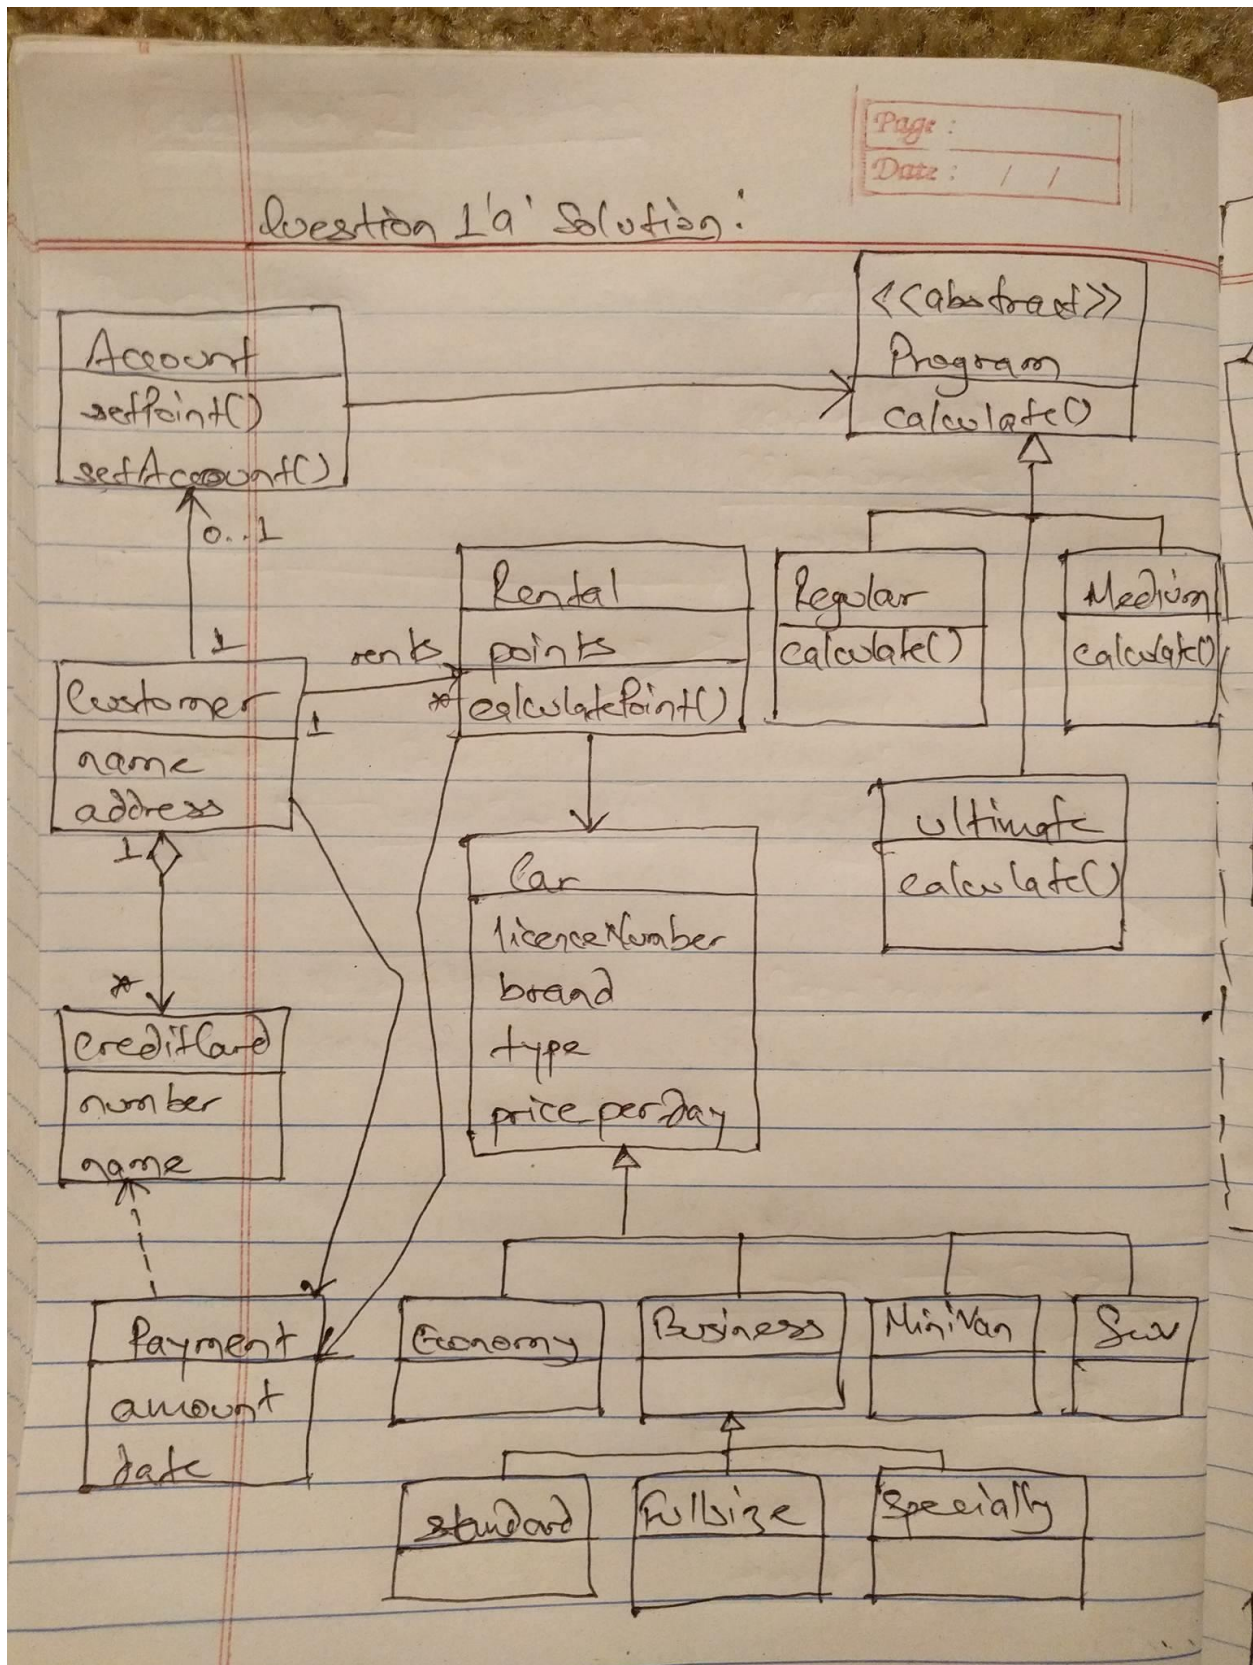 Page :
Date : / /
Question 1 'a' Solution :
<<abstract>>
Program
calculate()
Account
setPoint()
setAccount()
0..1
1
Rental
points
calculatePoint()
Regular
calculate()
Medium
calculate()
rents
*
1
Customer
name
address
1
*
Ultimate
calculate()
Car
licenceNumber
brand
type
price_perday
CreditCard
number
name
Payment
amount
date
Economy
Business
MiniVan
Suv
standard
Fullsize
Specially